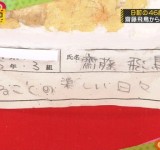 日初の46
齋藤飛鳥から
年・3組
氏名
齋藤 飛鳥
ることの楽しい日々